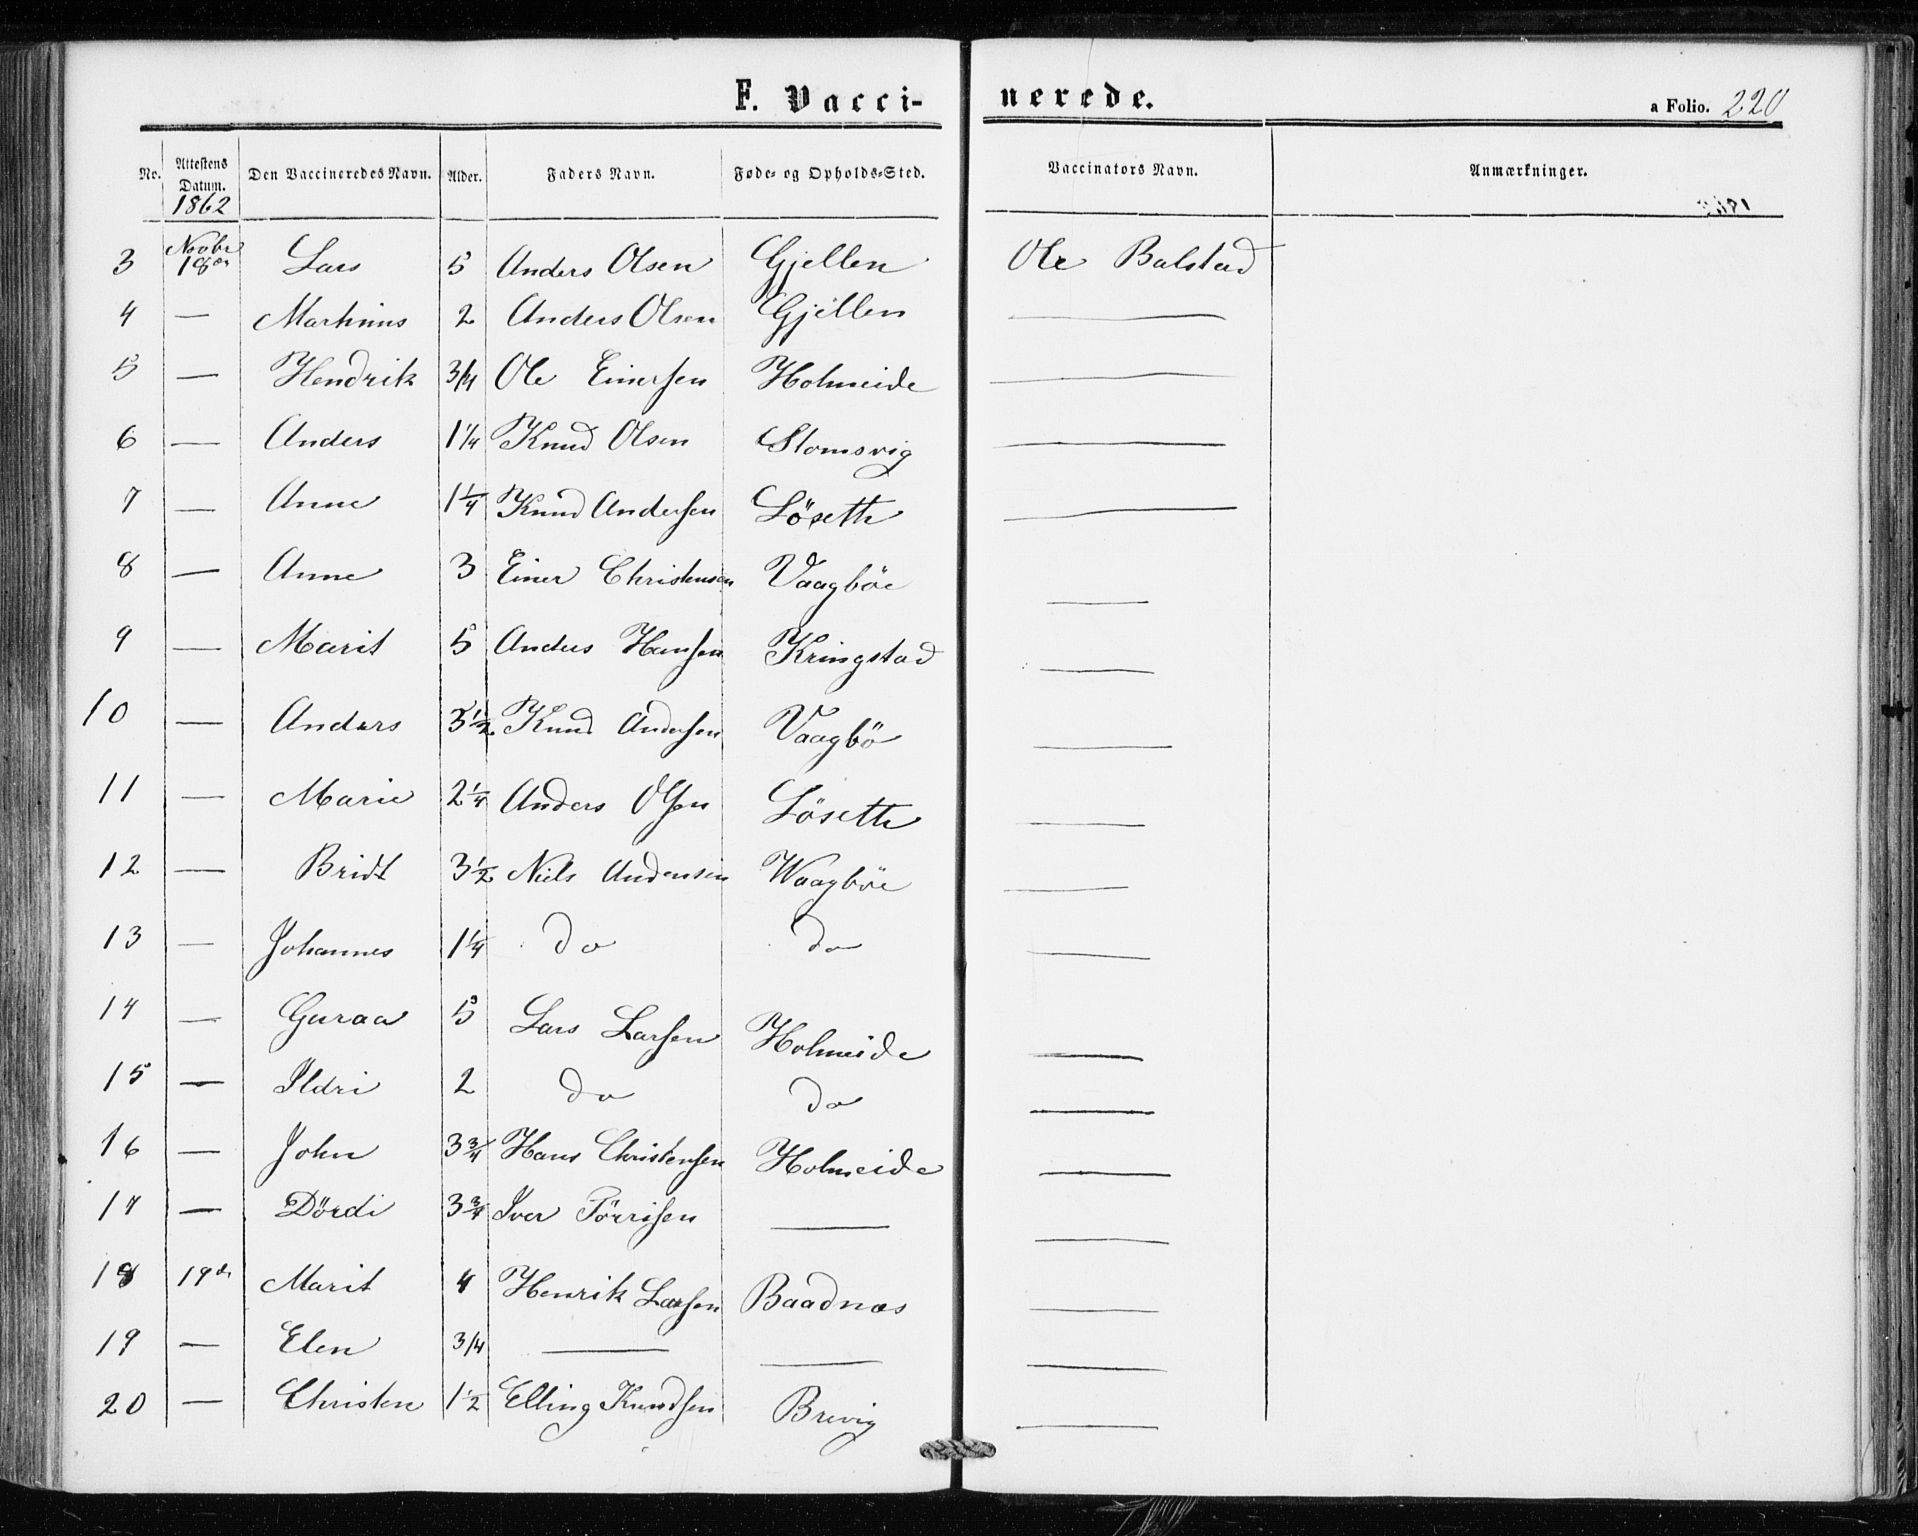 F. Vacci-nerede.
a Folio. 220
No. Attestens Datum. Den Vaccineredes Navn. Alder. Faders Navn. Føde- og Opholds-Sted. Vaccinators Navn. Anmærkninger.
1862
3 Novbr 18de Lars 5 Anders Olsen Gjellen Ole Balstad
4 — Marhinus 2 Anders Olsen Gjellen —
5 — Hendrik 3/4 Ole Einersen Holmeide —
6 — Anders 1 1/4 Knud Olsen Slomsvig —
7 — Anne 1 1/4 Knud Andersen Løseth —
8 — Anne 3 Einer Christensen Vaagbøe —
9 — Marit 5 Anders Hansen Kringstad —
10 — Anders 3 1/2 Knud Andersen Vaagbö —
11 — Marie 2 1/4 Anders Olsen Løseth —
12 — Bridt 3 1/2 Niels Andersen Waagbøe —
13 — Johannes 1 1/4 do do —
14 — Guraa 5 Lars Larsen Holmeide —
15 — Ildri 2 do do —
16 — John 3 3/4 Hans Christensen Holmeide —
17 — Dördi 3 3/4 Iver Törrisen — —
18 19de Marit 4 Henrik Larsen Baadnæs —
19 — Elen 3/4 — — —
20 — Christen 1 1/2 Elling Knudsen Brevig —